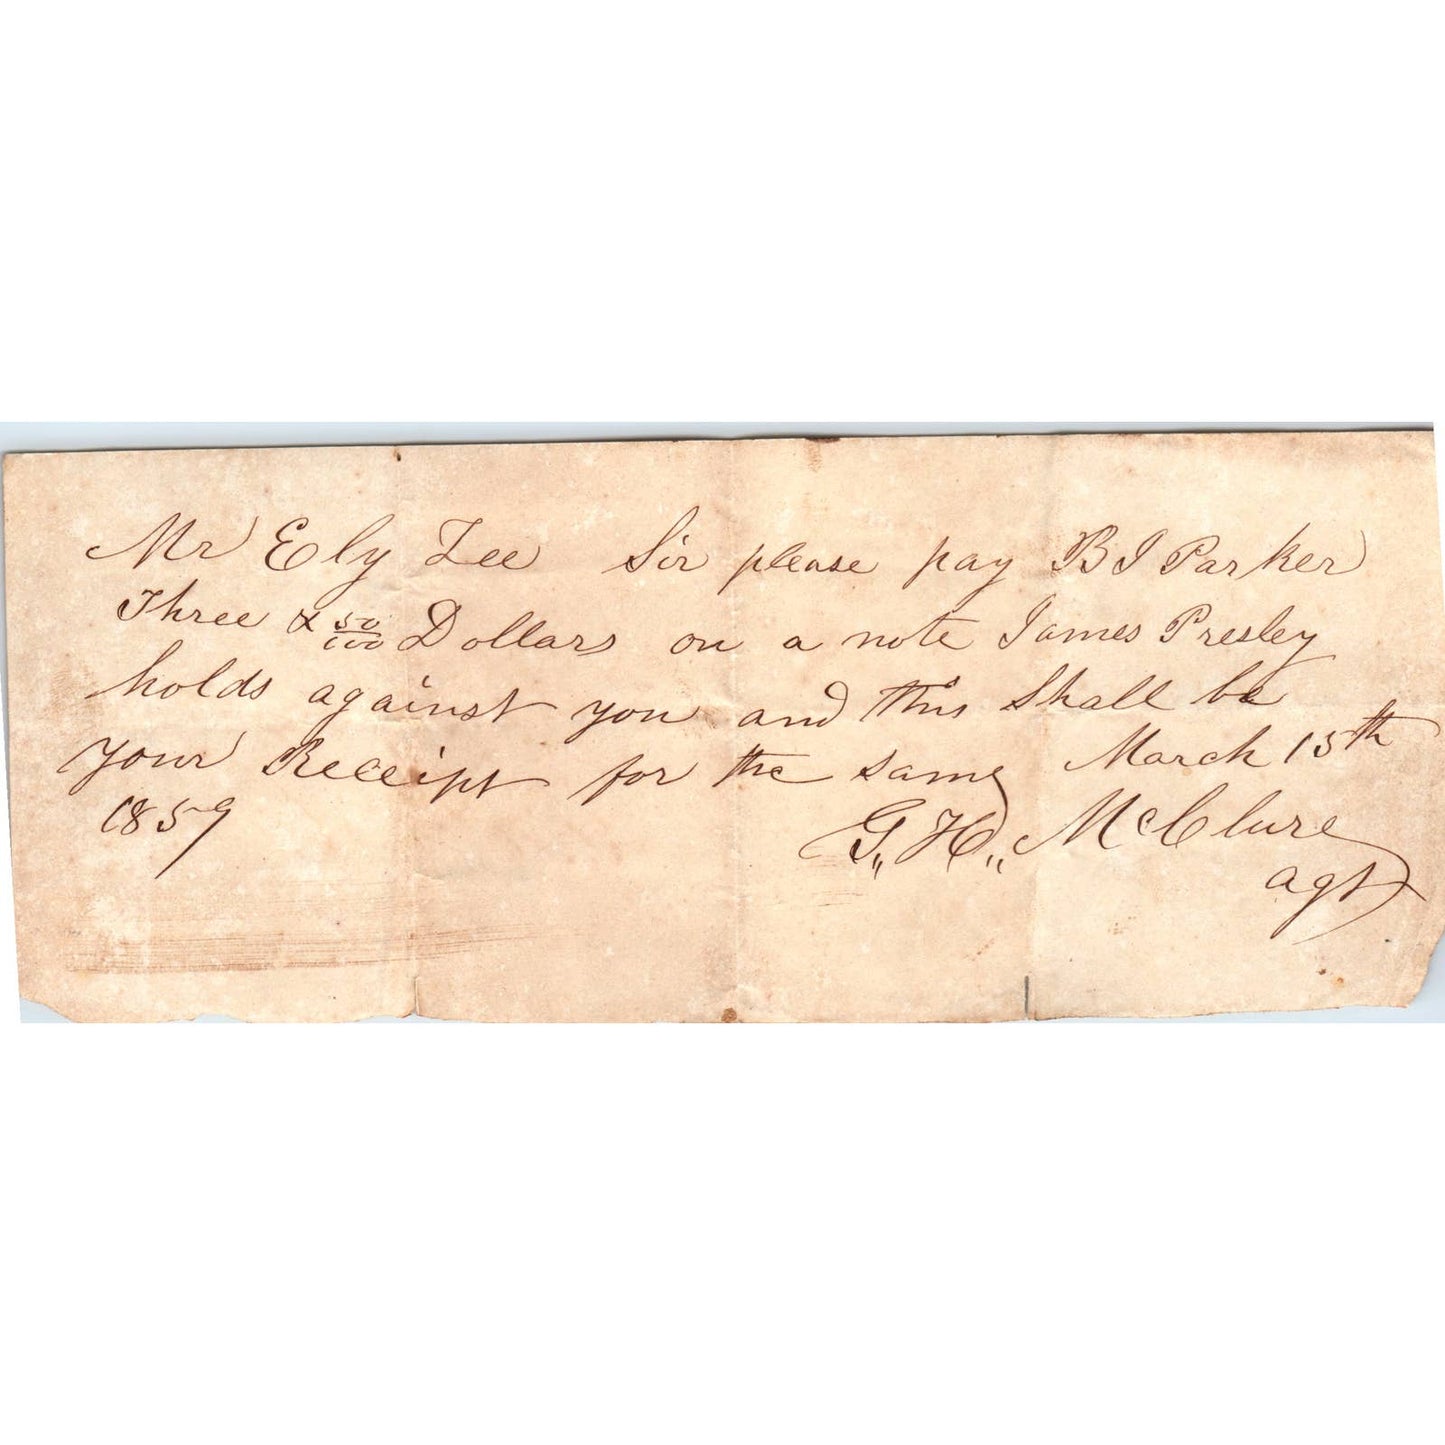 Mr Ely Lee Sir please pay B I Parker
Three & 50/100 Dollars on a note James Presley
holds against you and this Shall be
your Receipt for the same March 15th
1859
G,, H,, McClure
agt